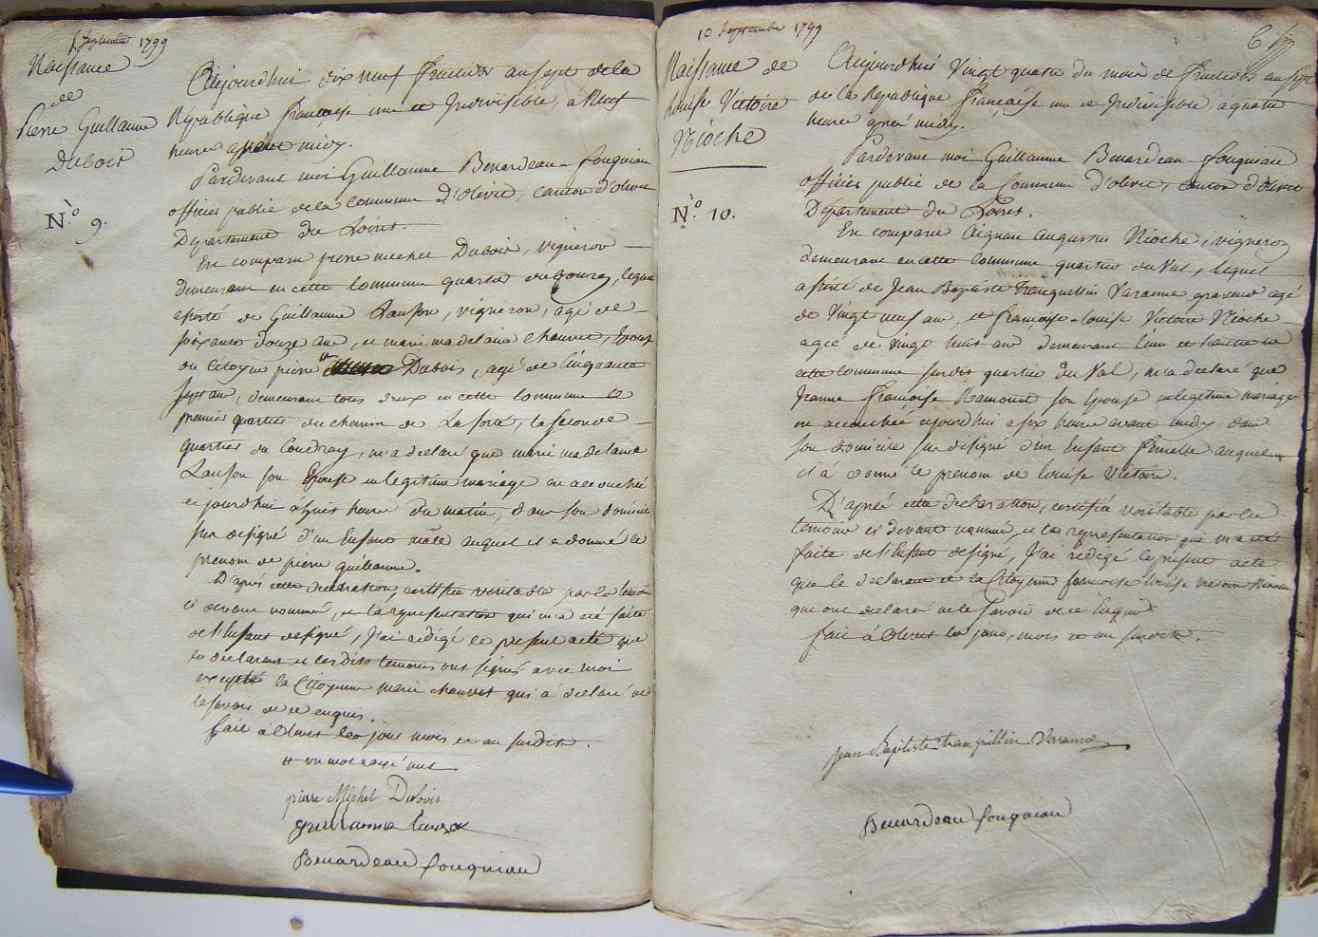 5 Septembre 1799
Naissance
de
Pierre Guillaume
Dubois
N.º 9.
Aujourdhui dix neuf Fructidor an sept de la
République française une et Indivisible, à
heures midy.
Pardevant moi Guillaume Benardeau-fougniau
officier public de la commune d'olivet, canton d'olivet
Département du Loiret.
En comparu pierre michel Dubois, vigneron
demeurant en cette commune quartier du lequel
assisté de Guillaume Lanson, vigneron, agé de
soixante douze ans, et marie madelaine chauvet, Epouse
du Citoyen pierre Dubois, agé de Cinquante
sept ans, demeurant tous deux en cette commune le
premier quartier du chemin de la seconde
quartier du Coudray, m'a déclaré que marie madelaine
Lanson son Epouse en légitime mariage est accouchée
ce jourdhui à huit heures du matin, dans son domicile
sus désigné d'un Enfant mâle auquel il a donné le
prenom de pierre guillaume.
D'après cette déclaration, certifiée véritable par les temoins
ci devant nommés, et la représentation qui m'a été faite
de l'Enfant désigné, J'ai rédigé le présent acte que
le déclarant et les dits temoins ont signés avec moi
excepté la Citoyenne marie chauvet qui a déclaré ne
le savoir de ce enquis.
fait à Olivet les jour mois et an susdits.
# un mot rayé nul
pierre Michel Dubois
guillaume
Benardeau fougniau
10 Septembre 1799
6
Naissance de
Louise Victoire
Nioche
N.º 10.
Aujourdhui Vingt quatre du mois de Fructidor an sept
de la République française une et Indivisible a quatre
heures après midy.
Pardevant moi Guillaume Benardeau-fougniau
officier public de la Commune d'olivet, canton d'olivet
Département du Loiret.
En comparu Aignan augustin Nioche, vigneron
demeurant en cette commune quartier du Val, lequel
assisté de Jean Baptiste Tranquillin Varanne agé
de Vingt neuf ans, et françoise-Louise Victoire Nioche
agée de vingt huit ans demeurant l'un et l'autre en
cette commune susdit quartier du Val, m'a déclaré que
Jeanne Françoise Ramond son Epouse en légitime mariage
est accouchée ajourdhui a six heures avant midy dans
son domicile sus désigné d'un Enfant femelle auquel
il à donné le prénom de Louise Victoire.
D'après cette déclaration, certifiée véritable par les
temoins ci devant nommés, et la représentation qui m'a été
faite de l'Enfant désigné, J'ai rédigé le présent acte
que le déclarant et la Citoyenne francoise louise victoire Nioche
qui ont déclaré ne le savoir de ce enquis
fait à Olivet les jour, mois et an susdits.
Jean Baptiste tranquillin Varanne
Benardeau fougniau